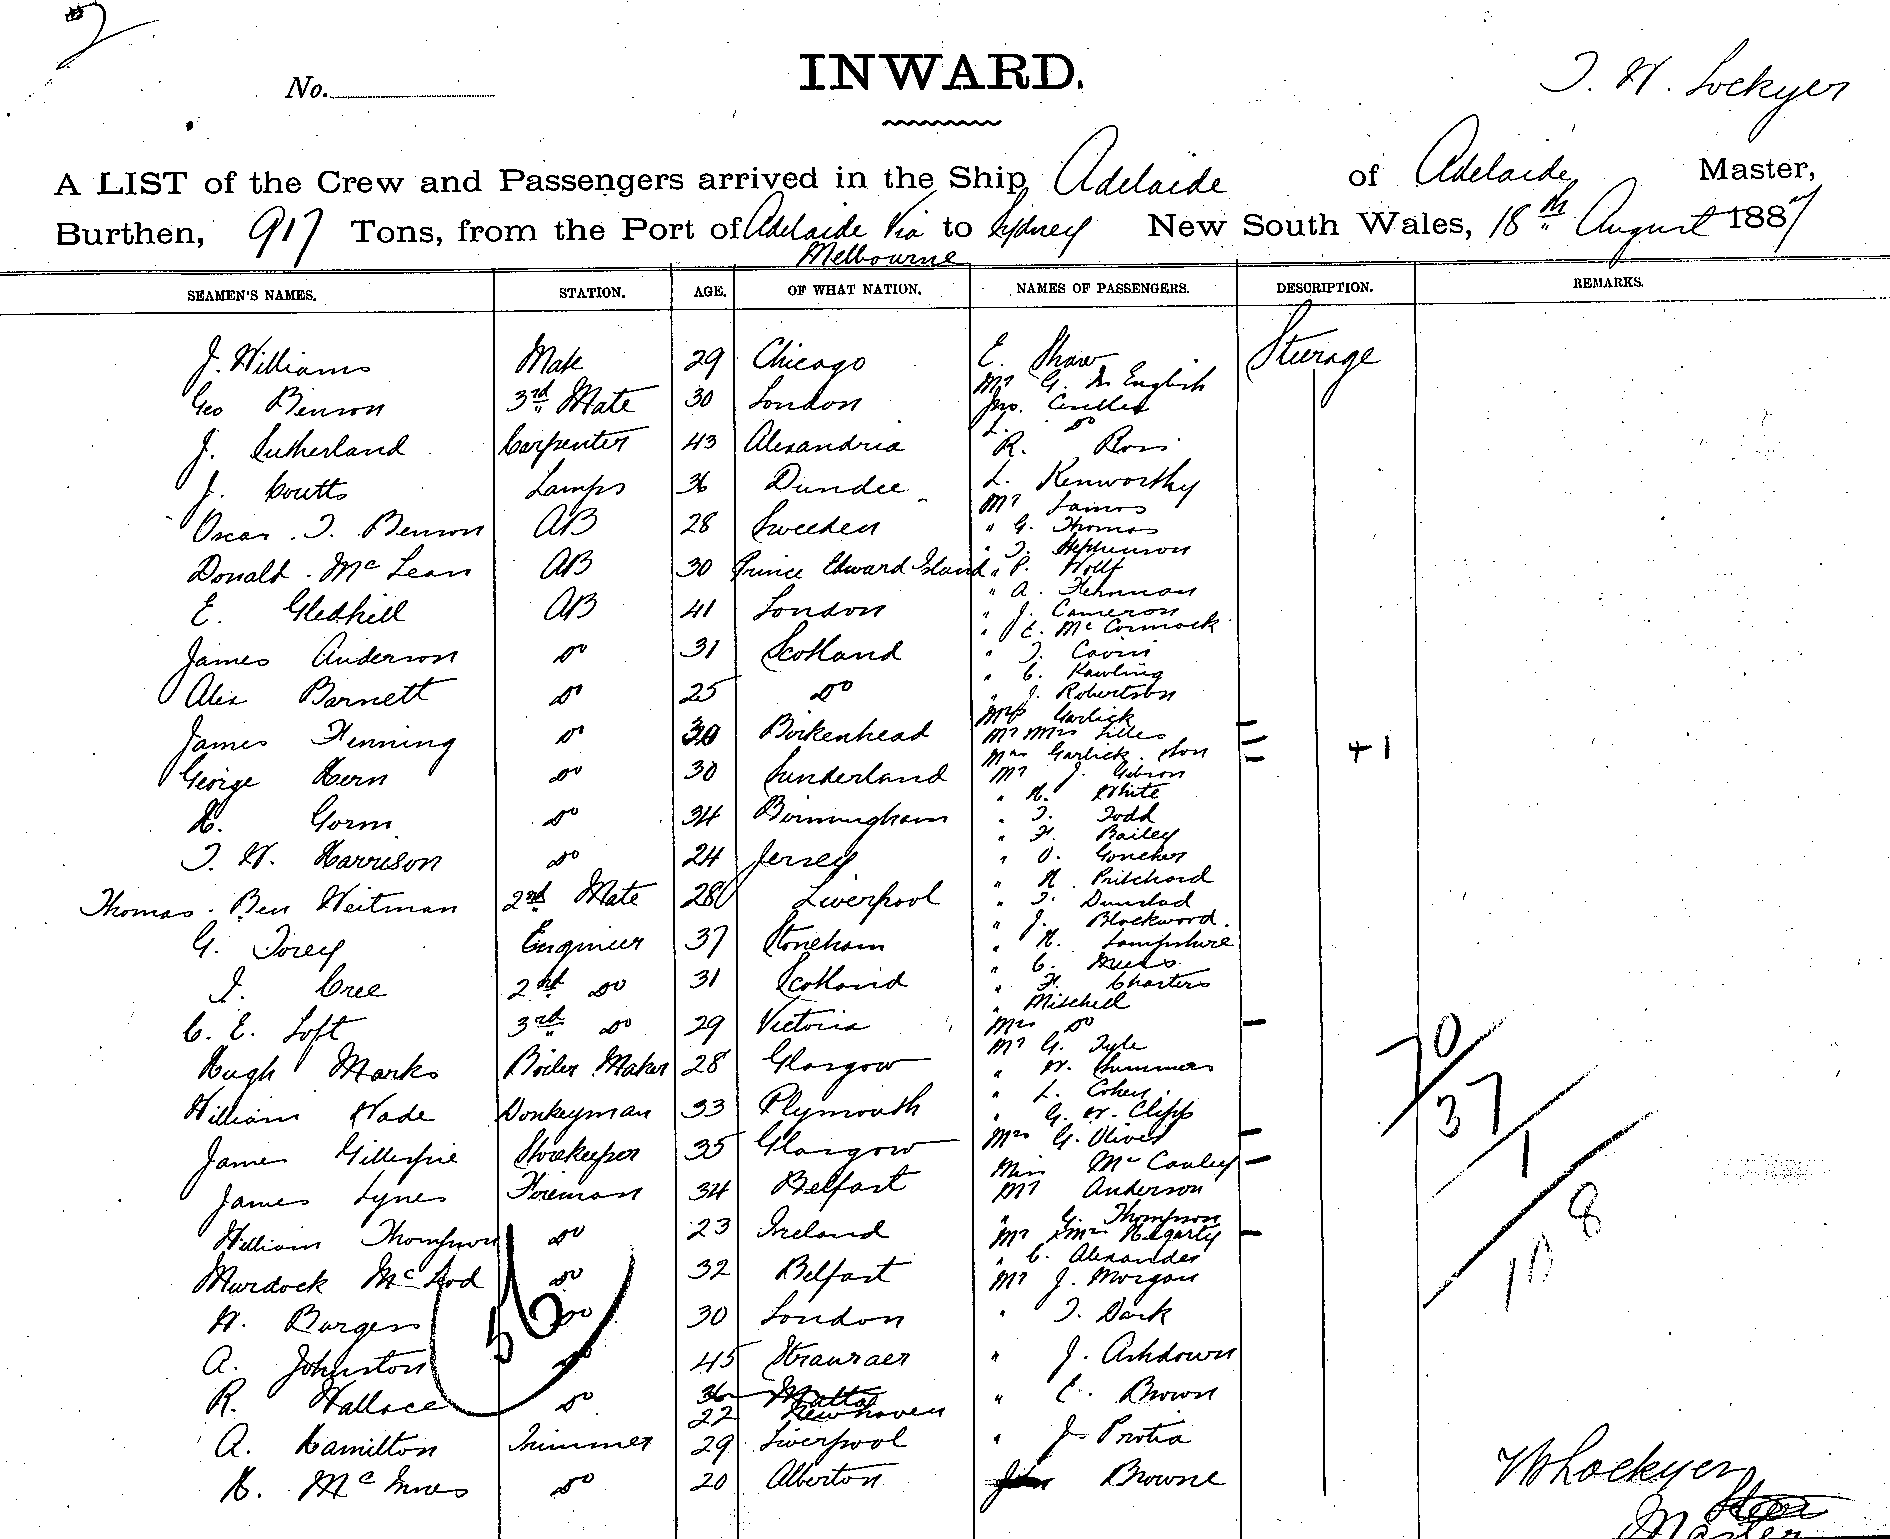 2
INWARD.
No.
T. H. Lockyer
A LIST of the Crew and Passengers arrived in the Ship Adelaide of Adelaide Master,
Burthen, 917 Tons, from the Port of Adelaide Via to Sydney New South Wales, 18th August 1887
Melbourne
SEAMEN'S NAMES. STATION. AGE. OF WHAT NATION. NAMES OF PASSENGERS. DESCRIPTION. REMARKS.
J. Williams Mate 29 Chicago E. Shaw Steerage
Mr G. M English
Geo Benson 3rd Mate 30 London Jno.
L. Do
J. Sutherland Carpenter 43 Alexandria R. Ross
J. Coutts Lamps 36 Dundee L. Kenworthy
Mr
Oscar. T. Benson AB 28 Sweeden " G. Thomas
" T. Stephenson
Donald. McLean AB 30 Prince Edward Island " P. Wolf
" A.
E. Gledhill AB 41 London " J. Cameron
" E. McCormack
James Anderson Do 31 Scotland " T.
" C. Rawling
Alex Barnett Do 25 Do " J. Robertson
Garlick
James Henning Do 30 Birkenhead Mr Mrs
Mrs Garlick. Son
+1
George Hern Do 30 Sunderland Mr J. Gibson
" H. White
H. Gorm Do 34 Birmingham " T. Todd
" F. Bailey
T. H. Harrison Do 24 Jersey " O.
" H. Pritchard
Thomas. Ben Weitman 2nd Mate 28 Liverpool " T.
" J. Blackwood.
G. Torey Engineer 37 Stoneham " H. Lampshire
" C.
I. Cree 2nd Do 31 Scotland " F. Charters
" Mitchell
C. E. Loft 3rd Do 29 Victoria Mrs Do
Mr G. Tyle
Hugh Marks Boiler Maker 28 Glasgow " W. Summers
" L. Cohen
70/
William Wade Donkeyman 33 Plymouth " G. W. Clipp
37/
Mrs G. Oliver
James Gillespie Storekeeper 35 Glasgow Miss McCauley
1/
James Lynes Fireman 34 Belfast Mr Anderson
" G. Thompson
108
William Thompson Do 23 Ireland Mr Mrs Hegarty
" C. Alexander
Murdock McLod Do 32 Belfast Mr J. Morgan
H. Burgess Do 30 London " T. Dark
56
A. Johnston Do 45 Stranraer " J. Ashdown
R. Wallace Do 36 Malta " E. Brown
22 Newhaven
A. Hamilton Trimmer 29 Liverpool " J. Protia
H. McInnes Do 20 Alberton Browne
W Lockyer
Master